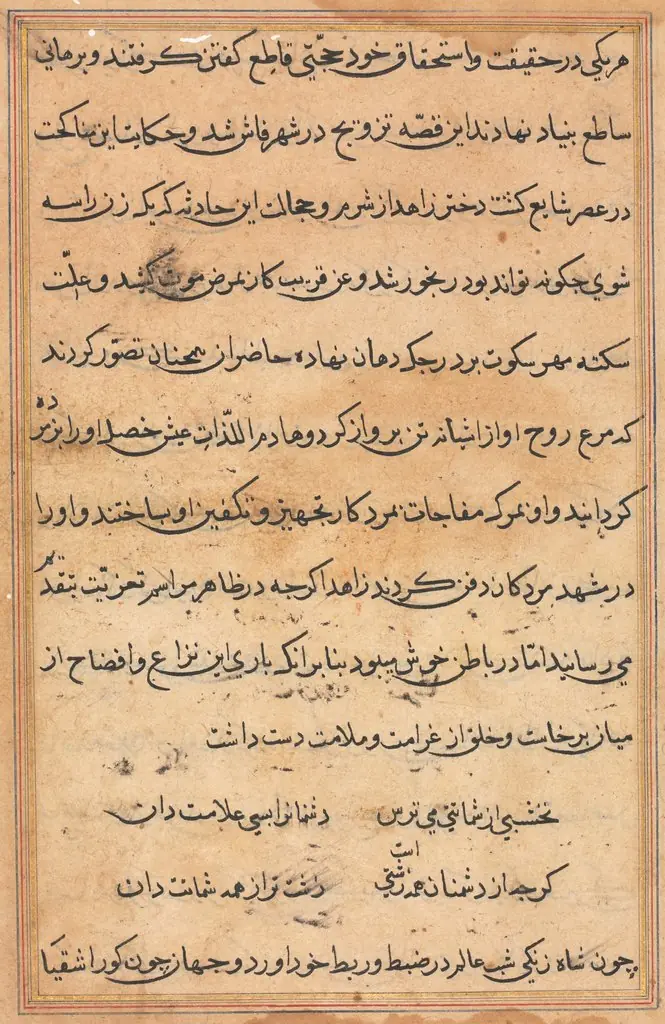 هریکی در حقیقت و استحقاق خود حجّتی قاطع کفتن کرفتند و برهانی
ساطع بنیاد نهادند این قصّه تزویج در شهر فاش شد و حکایت این مناکحت
در عصر شایع کشت دختر زاهد از شرم و خجالت این حادثه که یک زن را سه
شوی چکونه تواند بود رنجور شد و عن قریب کار بمرض موت کشید و علّت
سکته مهر سکوت بر درجک دهان نهاده حاضران همچنان تصوّر کردند
که مرغ روح او از اشیانه تن پرواز کرد و هادم اللذّات عیش خصل او را بزمرده
کردانید و او بمرک مفاجات بمرد کار تجهیز و تکفین او بساختند و او را
در مشهد مردکان دفن کردند زاهد اکرجه در ظاهر مراسم تعزیّت بتقدیم
می رسانید امّا در باطن خوش میبود بنا بر انکه باری این نزاع و افضاح از
میان برخاست و خلق از غرامت و ملامت دست داشت
نخشبی از شماتتی می ترس دشمنان را بسی علامت دان
کرجه از دشمنان همه زشتی است زشت تر از همه شماتت دان
چون شاه زنکی شب عالم در ضبط و ربط خود اورد و جهان چون کور اشقیا